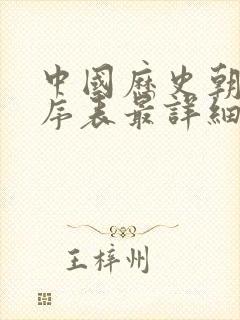 中國歷史朝
序表最詳細
王梓州